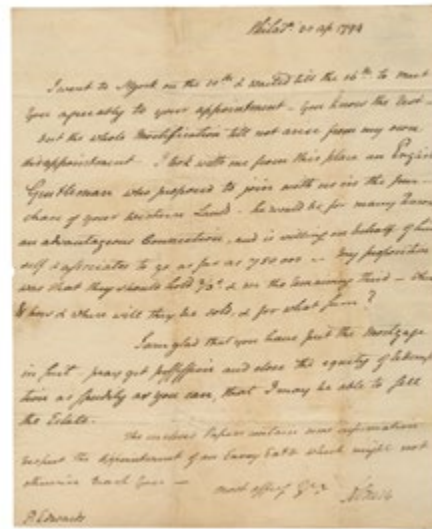 Philad.ª 20 Ap 1794
I went to NYork on the 10th & waited till the 16th to meet
you agreeably to your appointment - you know the rest -
but the whole Mortification did not arise from my own
disappointment. I took with me from this place an English
Gentleman who proposed to join with us in the pur-
chase of your Western Land. he would be for many reasons
an advantageous Connection, and is willing on behalf of him
self & associates to go as far as 780 000 - My proposition
was that they should hold 2/3ds & we the remaining third -
& how & where will they be sold, & for what sum?
I am glad that you have put the Mortgage
in suit. pray get possession and close the equity of redemp
tion as speedily as you can, that I may be able to sell
the Estate.
The inclosed Papers contain some information
respect the Appointment of an Envoy Extr which might not
otherwise reach you -
most affecy Yrs
P. Edwards